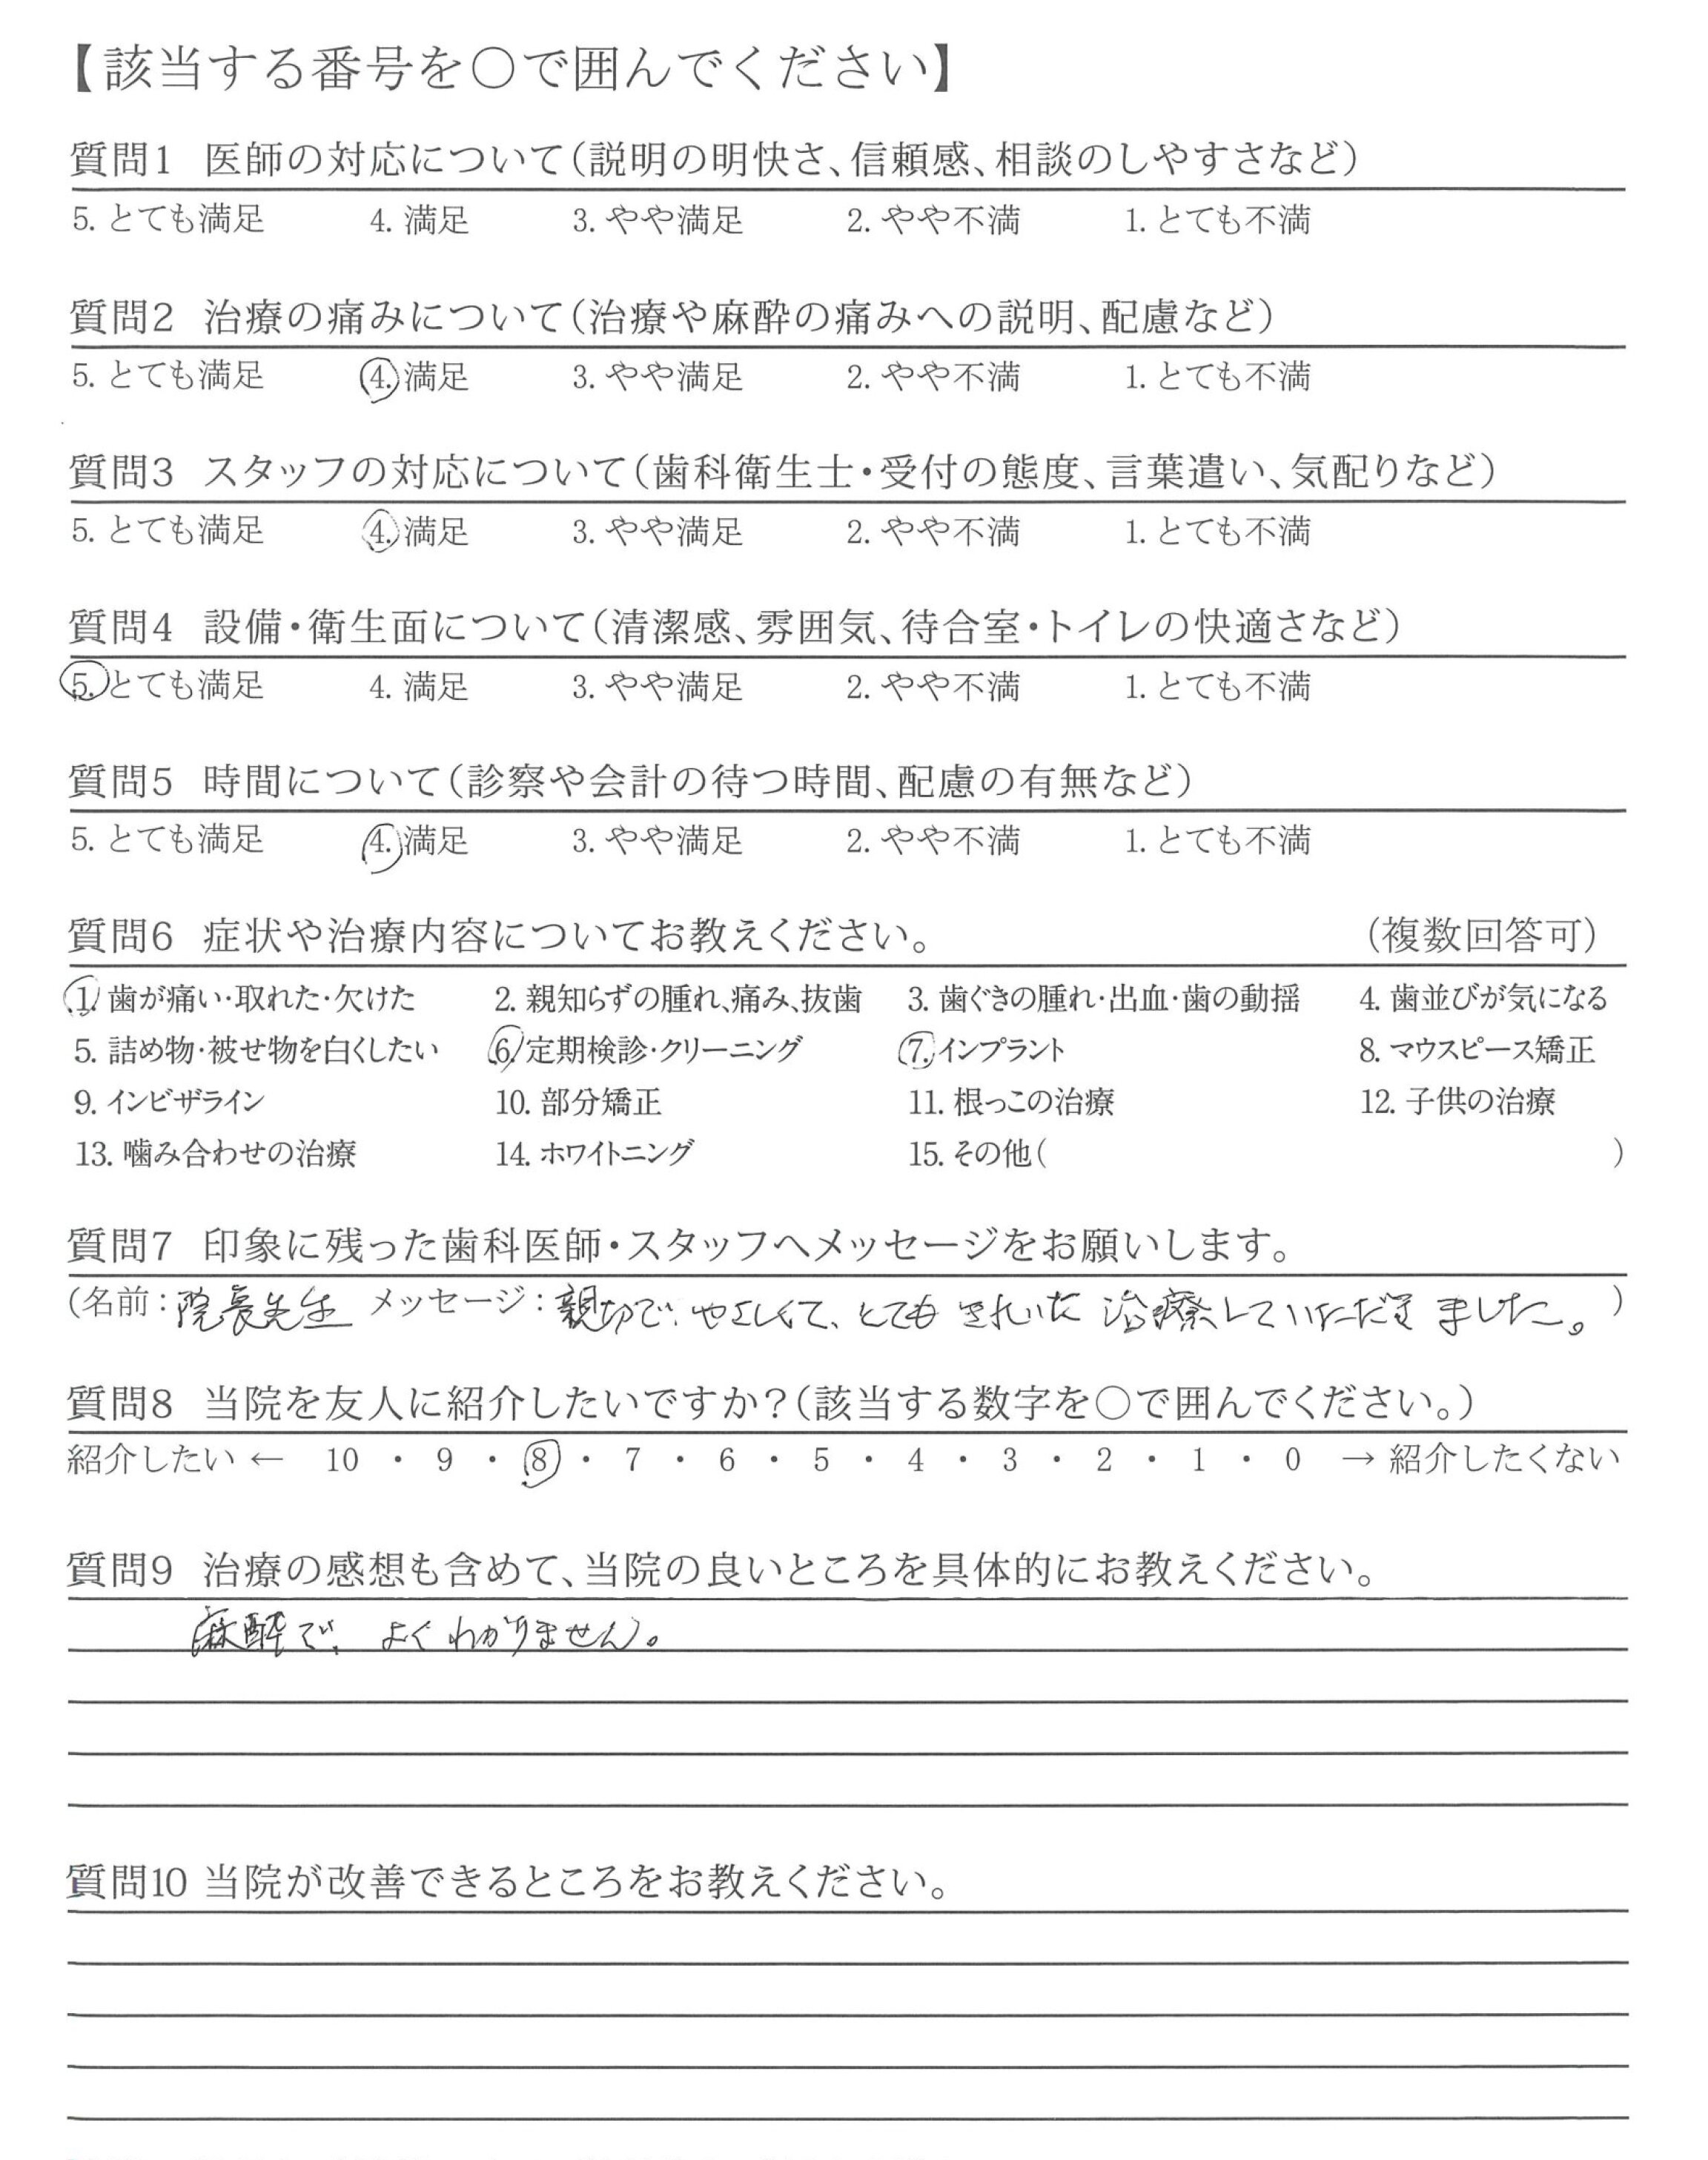 【該当する番号を○で囲んでください】
質問1 医師の対応について(説明の明快さ、信頼感、相談のしやすさなど)
5. とても満足 4. 満足 3. やや満足 2. やや不満 1. とても不満
質問2 治療の痛みについて(治療や麻酔の痛みへの説明、配慮など)
5. とても満足 4. 満足 3. やや満足 2. やや不満 1. とても不満
質問3 スタッフの対応について(歯科衛生士・受付の態度、言葉遣い、気配りなど)
5. とても満足 4. 満足 3. やや満足 2. やや不満 1. とても不満
質問4 設備・衛生面について(清潔感、雰囲気、待合室・トイレの快適さなど)
5. とても満足 4. 満足 3. やや満足 2. やや不満 1. とても不満
質問5 時間について(診察や会計の待つ時間、配慮の有無など)
5. とても満足 4. 満足 3. やや満足 2. やや不満 1. とても不満
質問6 症状や治療内容についてお教えください。 (複数回答可)
1. 歯が痛い・取れた・欠けた 2. 親知らずの腫れ、痛み、抜歯 3. 歯ぐきの腫れ・出血・歯の動揺 4. 歯並びが気になる
5. 詰め物・被せ物を白くしたい 6. 定期検診・クリーニング 7. インプラント 8. マウスピース矯正
9. インビザライン 10. 部分矯正 11. 根っこの治療 12. 子供の治療
13. 噛み合わせの治療 14. ホワイトニング 15. その他( )
質問7 印象に残った歯科医師・スタッフへメッセージをお願いします。
(名前：院長先生 メッセージ：親切で、やさしくて、とても きれいに 治療していただき ました。)
質問8 当院を友人に紹介したいですか？(該当する数字を○で囲んでください。)
紹介したい ← 10 ・ 9 ・ 8 ・ 7 ・ 6 ・ 5 ・ 4 ・ 3 ・ 2 ・ 1 ・ 0 → 紹介したくない
質問9 治療の感想も含めて、当院の良いところを具体的にお教えください。
麻酔で、よくわかりません。
質問10 当院が改善できるところをお教えください。